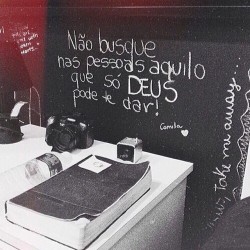 Não busque
nas pessoas aquilo
que só DEUS
pode te dar!
Camila
take me away...